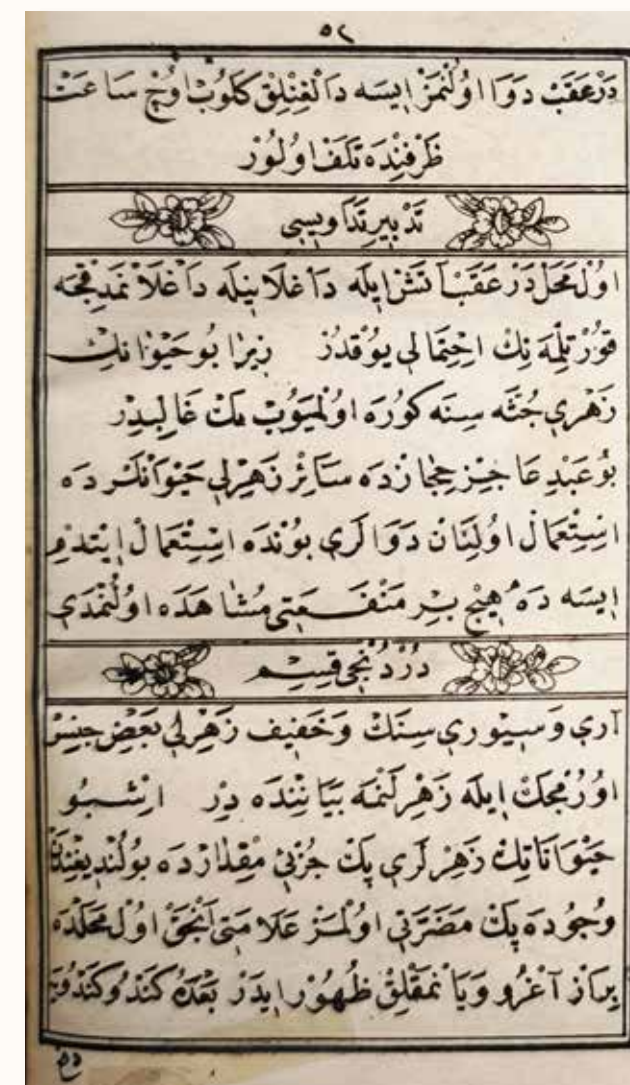 ٥٢
دَرْعَقَبْ دَوَا اوُلُنْمَزْ اِيسَه دَالْغِنْلِقْ كَلُوبْ اوُچْ سَاعَتْ
ظَرْفِنْدَه تَلَفْ اوُلوُرْ
تَدْبِيرِ تَدَاوِيسِى
اوُلْ مَحَلْ دَرْعَقَبْ آتَشْ اِيلَه دَاغْلَانِيلَه دَاغْلَانْمَدِقْجَه
قوُرْتِلْمَه نِكْ اِحْتِمَالِى يوُقْدُرْ زِيرَا بوُ حَيْوَانِكْ
زَهْرِى جُثَّه سِنَه كوُرَه اوُلْمَيوُبْ پَكْ غَالِبْدِرْ
بوُ عَبْدِ عَاجِزْ حِجَازْدَه سَائِرْ زَهْرِلِى حَيْوَانْلَرْدَه
اِسْتِعْمَالْ اوُلِنَانْ دَوَالَرِى بوُنْدَه اِسْتِعْمَالْ اِيتْدِمْ
اِيسَه دَه هِيچْ بِرْ مَنْفَعَتِى مُشَاهَدَه اوُلُنْمَدِى
دُرْدُنْجِى قِسِمْ
آرِى وَسِيوْرِى سِنَكْ وَخَفِيفْ زَهْرِلِى بَعْضِ جِنِسْ
اوُرُمْجَكْ اِيلَه زَهْرِلَنْمَه بَيَانِنْدَه دِرْ اِشْبوُ
حَيْوَانَاتِكْ زَهْرِلَرِى پَكْ جُزْئِى مِقْدَارْدَه بوُلُنْدِيغِنْدَنْ
وُجوُدَه پَكْ مَضَرَّتِى اوُلْمَزْ عَلَامَتِى اَنْجَقْ اوُلْ مَحَلْدَه
بِرَازْ آغْرُو وَيَا يَمْقَلِقْ ظُهوُرْ اِيدَرْ بَعْدَهُ كَنْدُو كَنْدُويَه